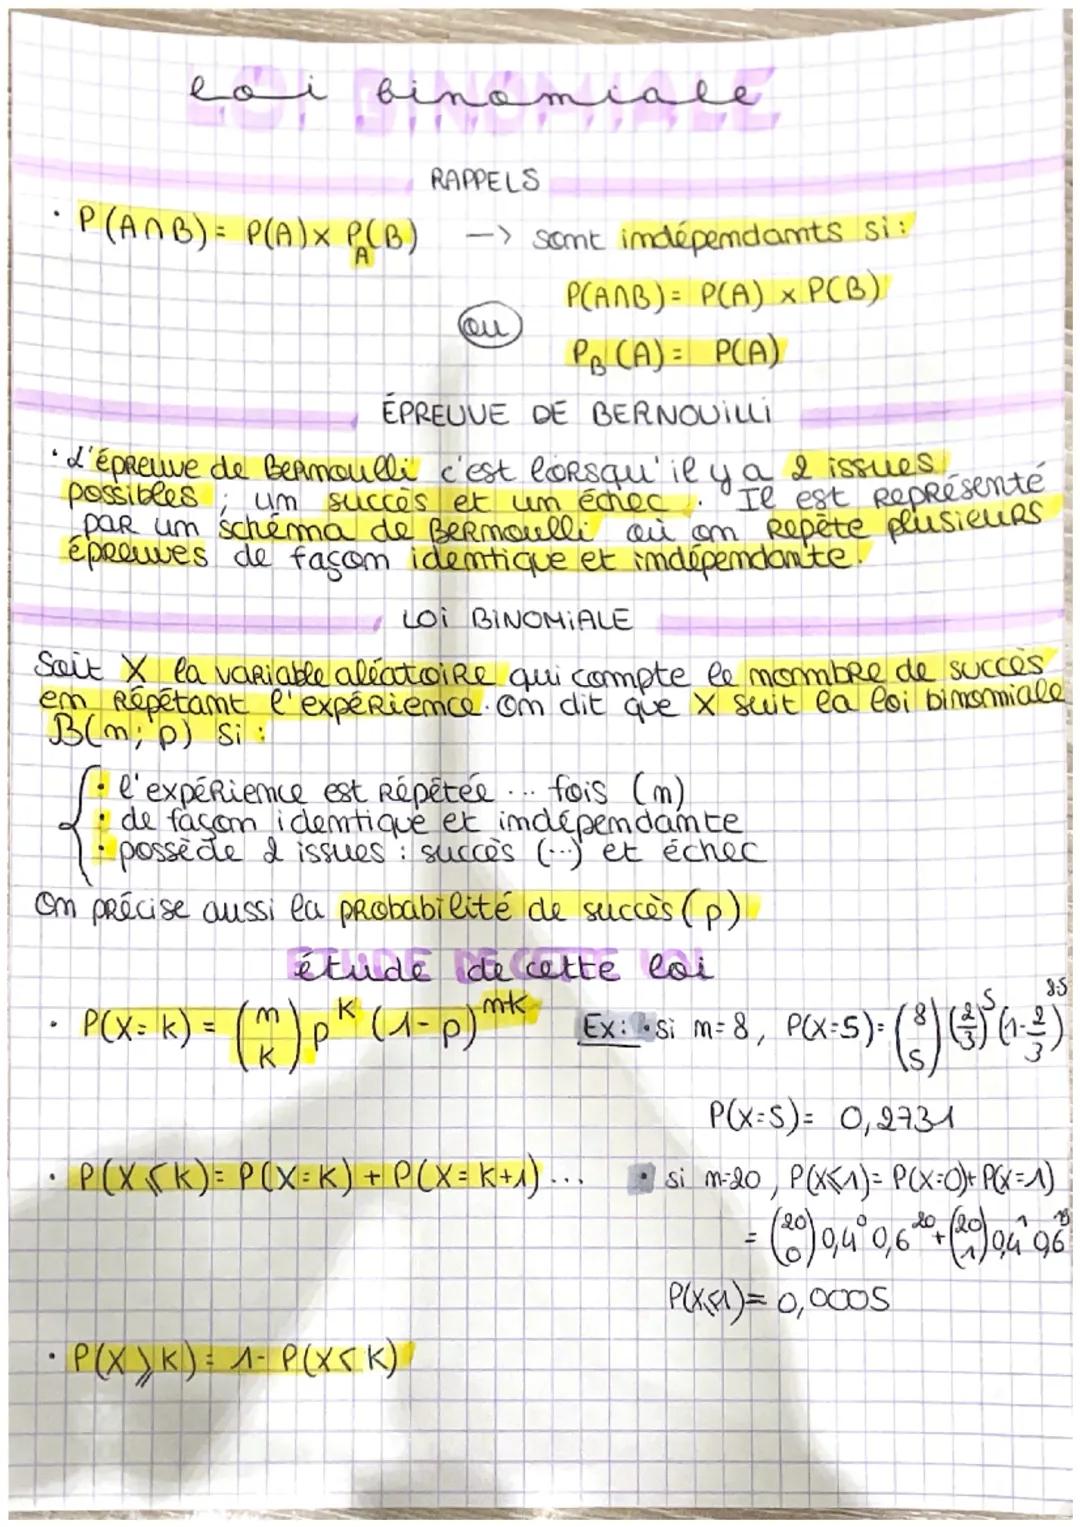 loi binomiale
RAPPELS
• P(A∩B) = P(A) x P_A(B) -> sont indépendants si :
P(A∩B) = P(A) x P(B)
ou
P_B(A) = P(A)
ÉPREUVE DE BERNOUILLI
• L'épreuve de Bernoulli c'est lorsqu'il y a 2 issues
possibles ; un succès et un échec. Il est représenté
par un schéma de Bernoulli où on repète plusieurs
épreuves de façon identique et indépendante.
LOI BINOMIALE
Soit X la variable aléatoire qui compte le nombre de succès
en répétant l'expérience. On dit que X suit la loi binomiale
B(n; p) si :
• l'expérience est répétée ... fois (n)
• de façon identique et indépendante
• possède 2 issues : succès (...) et échec
On précise aussi la probabilité de succès (p)
étude de cette loi
• P(X=k) = (n k) p^k (1-p)^nk Ex: • si n=8, P(X=5) = (8 5) (2/3)^5 (1-2/3)^8-5
P(X=5) = 0,2731
• P(X⩽k) = P(X=k) + P(X=k+1) ... • si n=20, P(X⩽1) = P(X=0) + P(X=1)
= (20 0) 0,4^0 0,6^20 + (20 1) 0,4^1 0,6^19
P(X⩽1) = 0,0005
• P(X⩾k) = 1 - P(X<k)